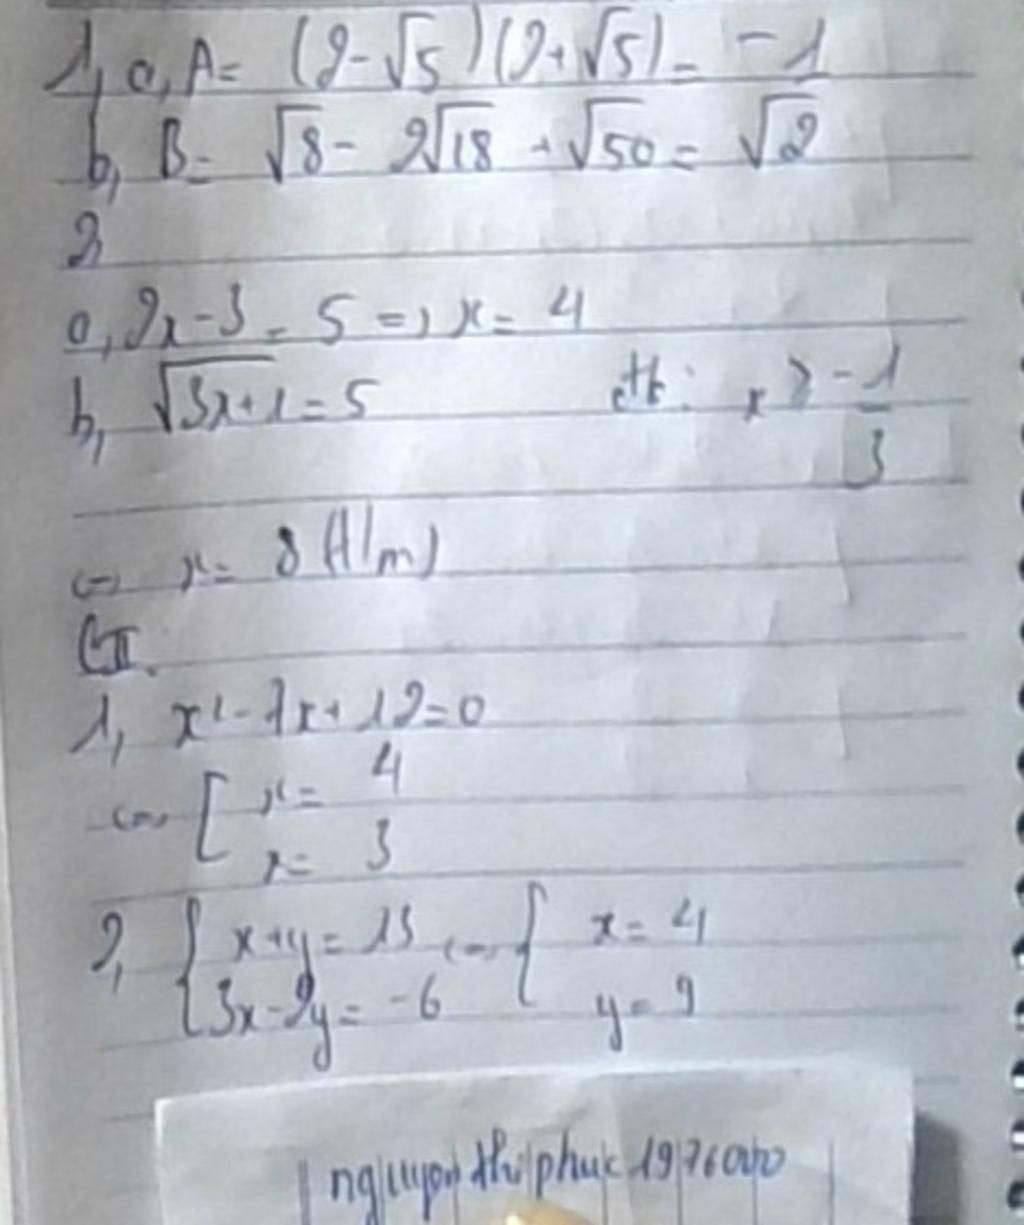 1, a, A= (2-√5)(2+√5) = -1
b, B= √8 - 2√18 + √50 = √2
2,
a, 2x-3 = 5 => x = 4
b, √3x+1 = 5 đk: x ≥ -1/3
<=> x = 8 (t/m)
CII.
1, x²-7x+12=0
<=> [ x = 4
x = 3
2, { x+y = 13 <=> { x = 4
3x-2y = -6 y = 9
nguyen thi phuc 1976000